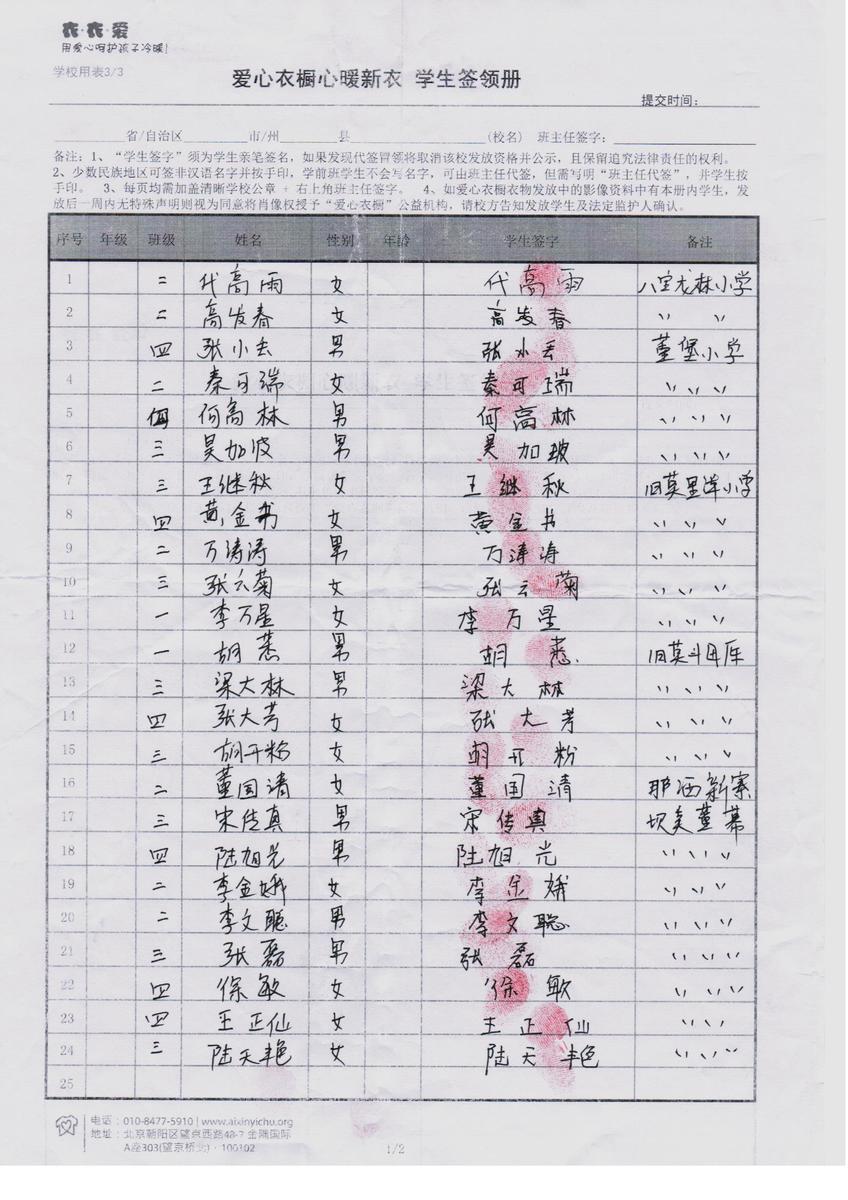 衣·衣·爱
用爱心呵护孩子冷暖!
学校用表3/3
爱心衣橱心暖新衣 学生签领册
提交时间:
省/自治区 市/州 县 (校名) 班主任签字:
备注:1、“学生签字”须为学生亲笔签名,如果发现代签冒领将取消该校发放资格并公示,且保留追究法律责任的权利。
2、少数民族地区可签非汉语名字并按手印,学前班学生不会写名字,可由班主任代签,但需写明“班主任代签”,并学生按
手印。 3、每页均需加盖清晰学校公章 + 右上角班主任签字。 4、如爱心衣橱衣物发放中的影像资料中有本册内学生,发
放后一周内无特殊声明则视为同意将肖像权授予“爱心衣橱”公益机构,请校方告知发放学生及法定监护人确认。
序号 年级 班级 姓名 性别 年龄 学生签字 备注
1 二 代高雨 女 代高雨 八宝龙林小学
2 二 高发春 女 高发春 〃 〃
3 四 张小去 男 张小丢 董堡小学
4 二 秦可瑞 女 秦可瑞 〃 〃 〃
5 四 何高林 男 何高林 〃 〃 〃
6 三 吴加波 男 吴加玻 〃 〃 〃
7 三 王继秋 女 王继秋 旧莫里洋小学
8 四 黄金书 女 黄金书 〃 〃 〃
9 二 万涛涛 男 万涛涛 〃 〃 〃
10 三 张云菊 女 张云菊 〃 〃 〃
11 一 李万星 女 李万星 〃 〃 〃
12 一 胡 男 胡 旧莫斗
13 三 梁大林 男 梁大林 〃 〃 〃
14 四 张大芳 女 张大芳 〃 〃 〃
15 三 胡开粉 女 胡开粉 〃 〃 〃
16 二 董国清 女 董国清 那洒新寨
17 三 宋传真 男 宋传真 坝美董幕
18 四 陆旭光 男 陆旭光 〃 〃 〃
19 二 李金娥 女 李金娥 〃 〃 〃
20 二 李文聪 男 李文聪 〃 〃 〃
21 三 张磊 男 张磊 〃 〃 〃
22 四 徐敏 女 徐敏 〃 〃 〃
23 四 王正仙 女 王正仙 〃 〃 〃
24 三 陆天艳 女 陆天艳 〃 〃 〃
25
电话:010-8477-5910 | www.aixinyichu.org
地址:北京朝阳区望京西路48-7 金隅国际
A座303(望京桥北)·100102
1/2